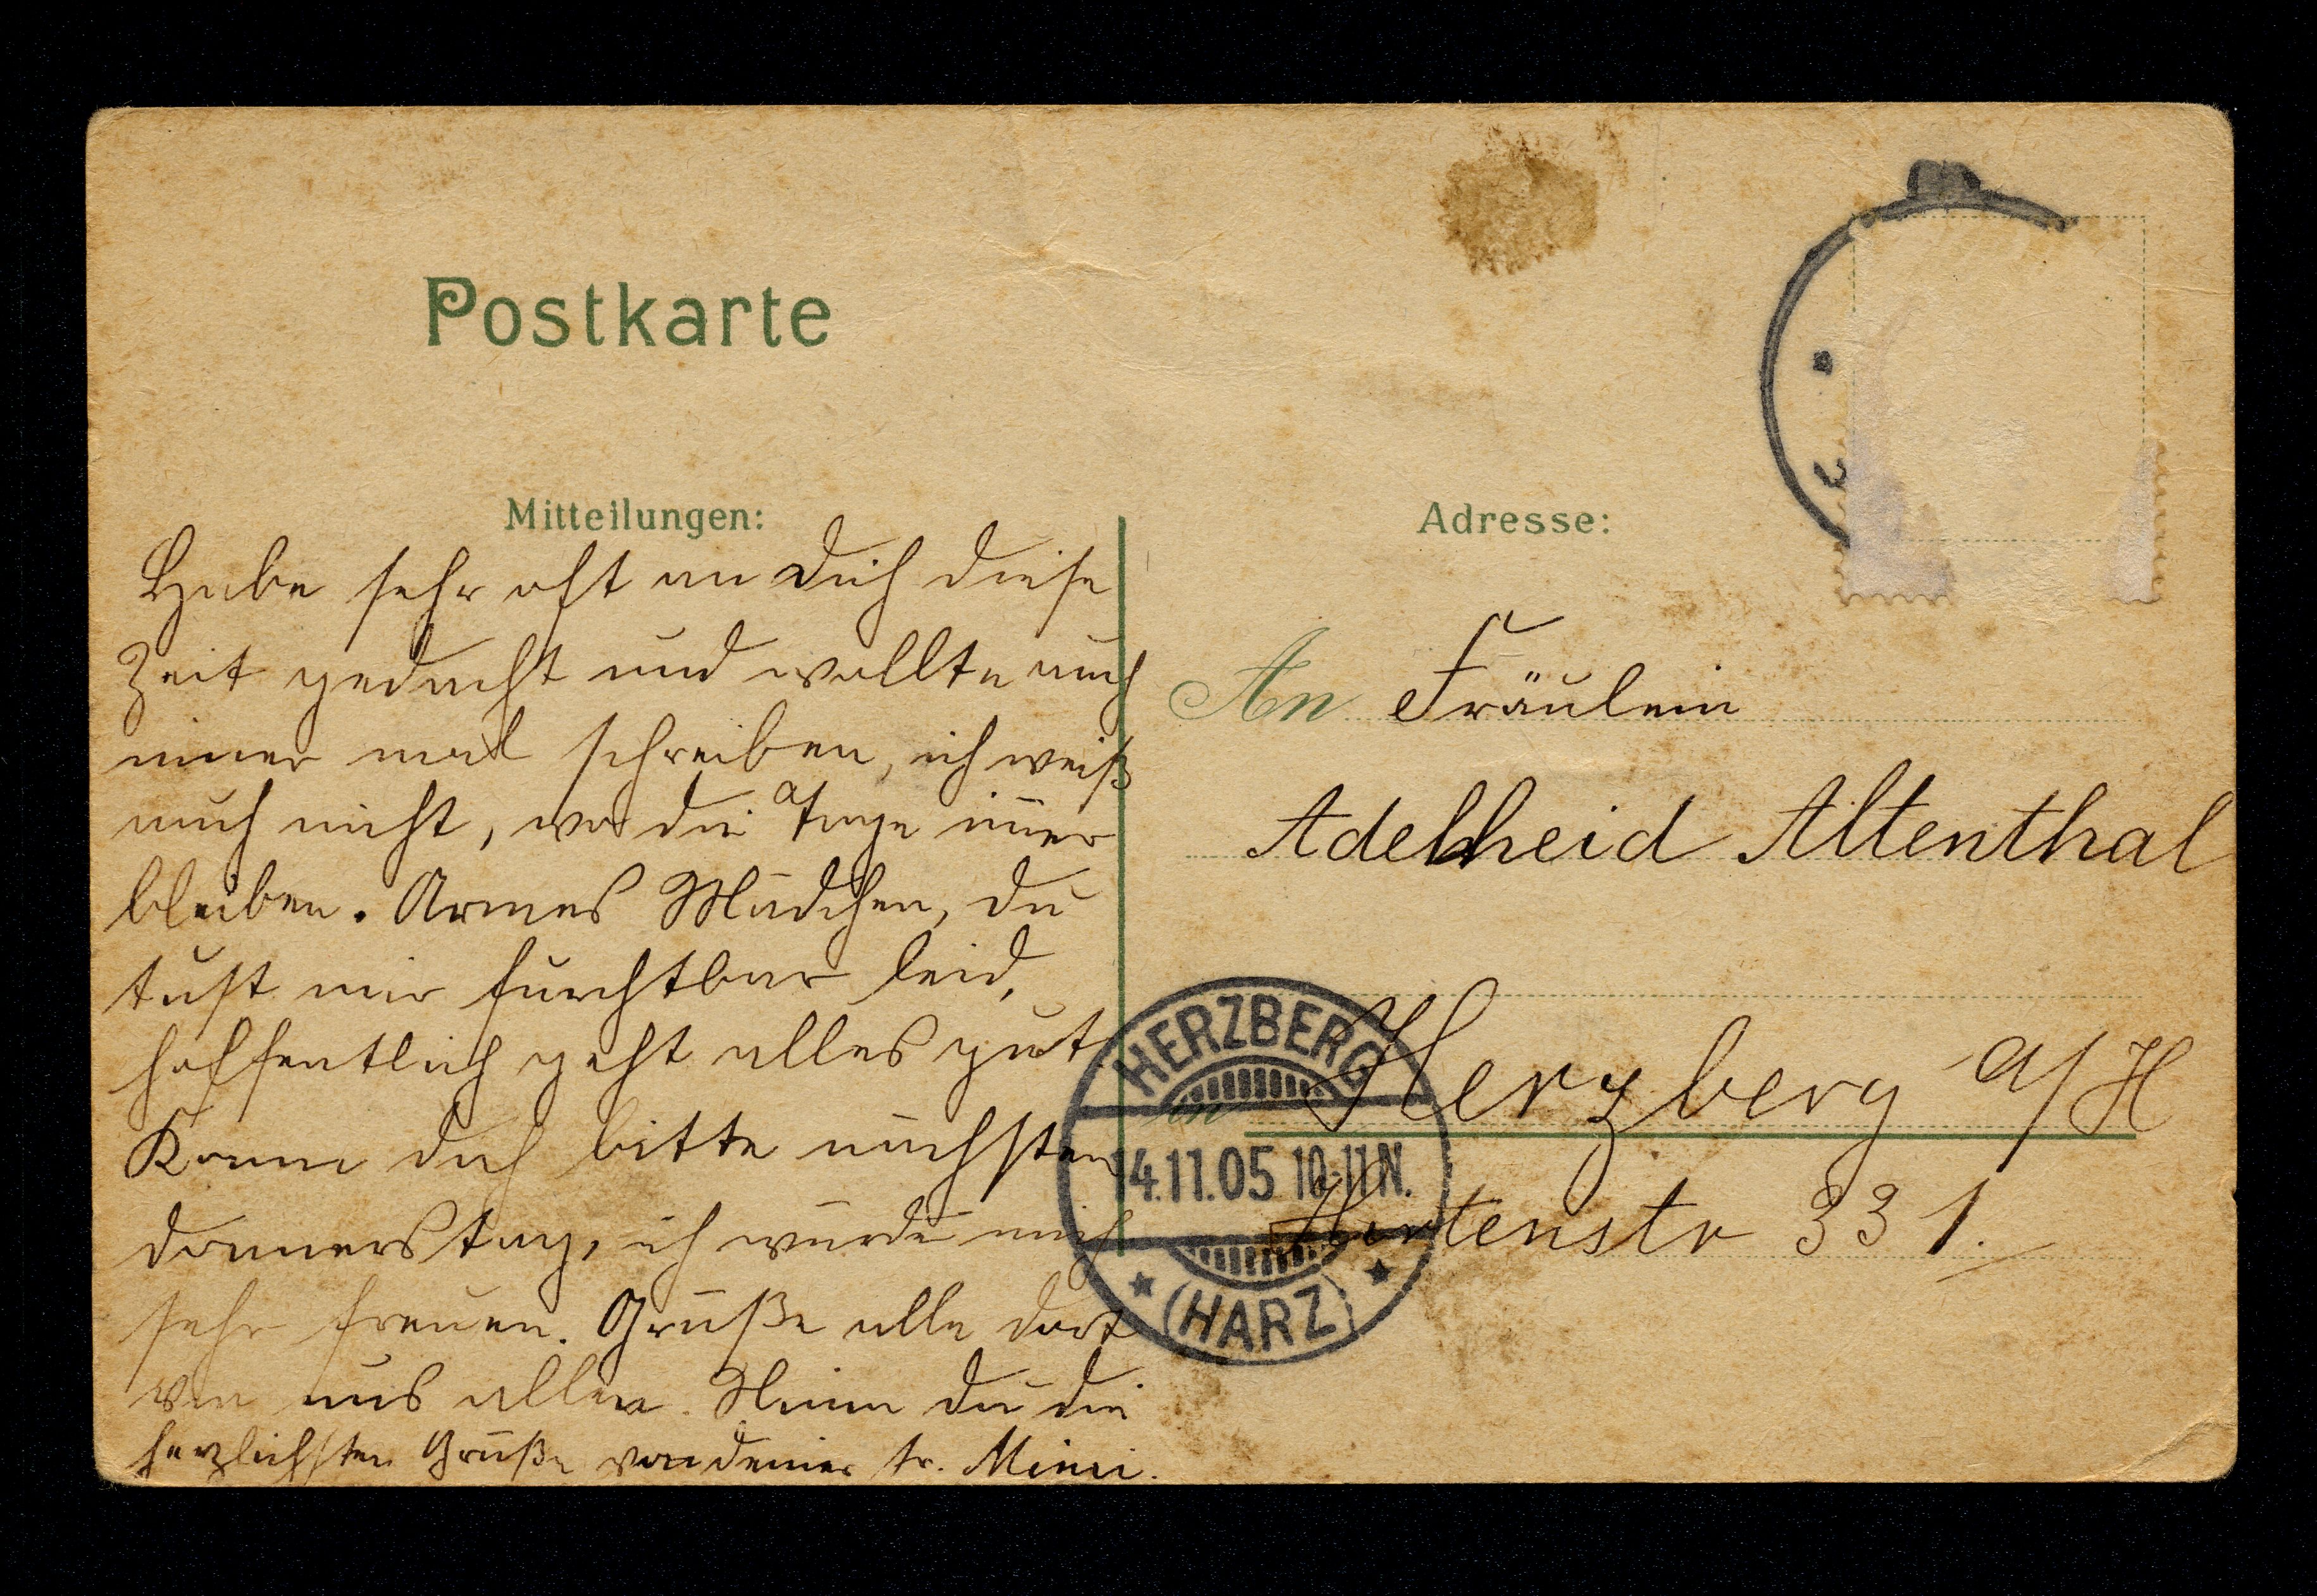 Postkarte
Mitteilungen:
Habe sehr oft an Dich diese
Zeit gedacht und wollte auch
immer mal schreiben, ich weiß
auch nicht, wo die Tage immer
bleiben. Armes Mädchen, du
tust mir furchtbar leid,
hoffentlich geht alles gut.
Komm doch bitte nächsten
Donnerstag, ich würde mich
sehr freuen. Grüße alle dort
von uns allen. Nimm du die
herzlichsten Grüße von deiner tr. Mimi.
Adresse:
An Fräulein
Adelheid Altenthal
in Herzberg a/H
33 1.
HERZBERG
14.11.05 10-11N.
(HARZ)